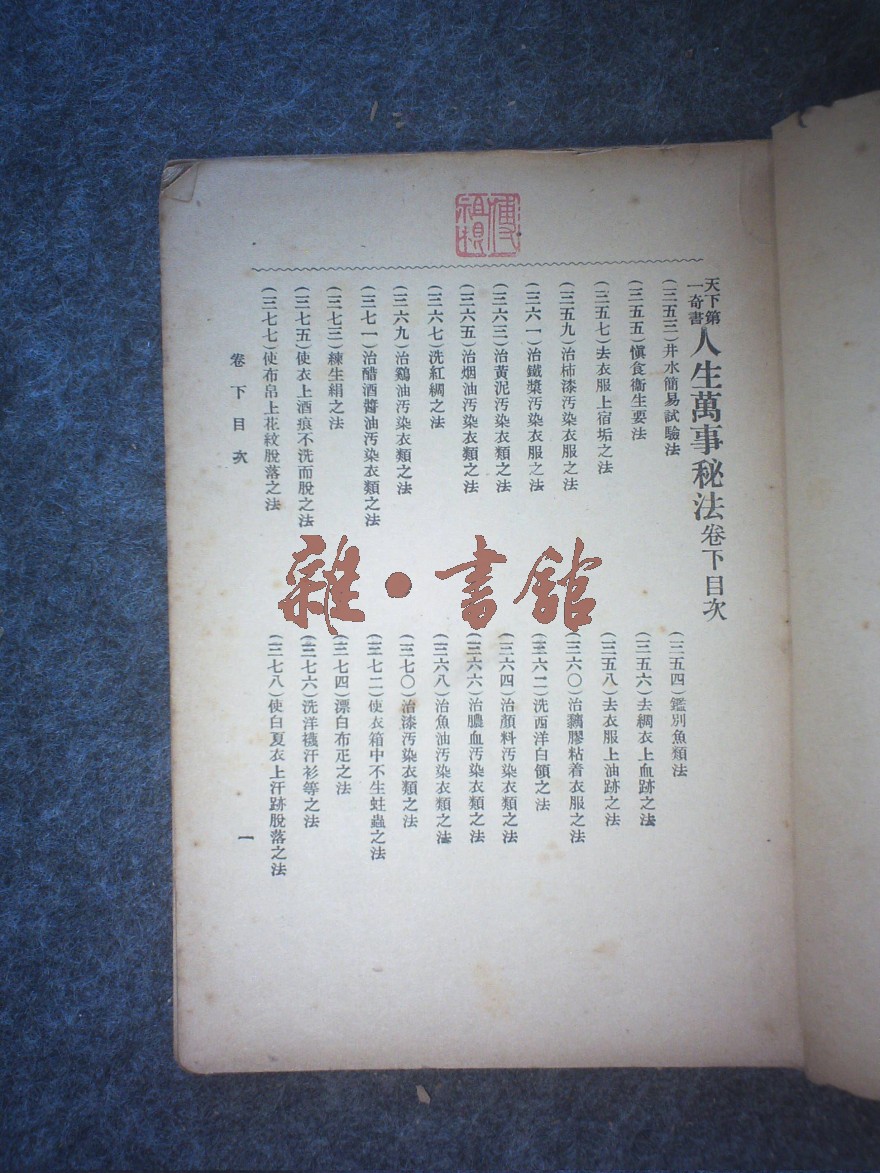 天下第一奇書 人生萬事秘法卷下目次
(三五三)井水簡易試驗法
(三五四)鑑別魚類法
(三五五)愼食衞生要法
(三五六)去綢衣上血跡之法
(三五七)去衣服上宿垢之法
(三五八)去衣服上油跡之法
(三五九)治柿漆汚染衣服之法
(三六〇)治黐膠粘着衣服之法
(三六一)治鐵漿汚染衣服之法
(三六二)洗西洋白領之法
(三六三)治黃泥汚染衣類之法
(三六四)治顏料汚染衣類之法
(三六五)治烟油汚染衣類之法
(三六六)治膿血汚染衣類之法
(三六七)洗紅綢之法
(三六八)治魚油汚染衣類之法
(三六九)治鷄油汚染衣類之法
(三七〇)治漆汚染衣類之法
(三七一)治醋酒醬油汚染衣類之法
(三七二)使衣箱中不生蛀蟲之法
(三七三)練生絹之法
(三七四)漂白布疋之法
(三七五)使衣上酒痕不洗而脫之法
(三七六)洗洋襪汗衫等之法
(三七七)使布帛上花紋脫落之法
(三七八)使白夏衣上汗跡脫落之法
卷下目次
一
雜·書館